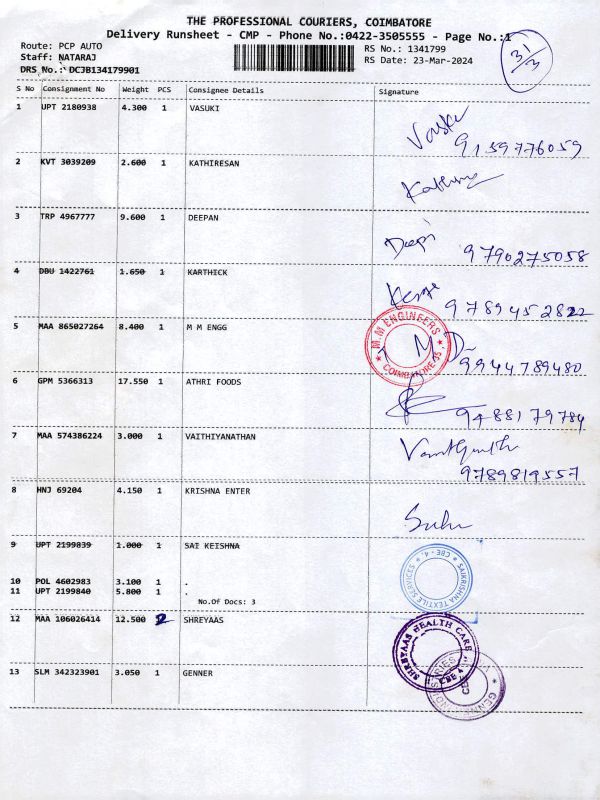 THE PROFESSIONAL COURIERS, COIMBATORE
Delivery Runsheet - CMP - Phone No.:0422-3505555 - Page No.:1
Route: PCP AUTO
RS No.: 1341799
31/3
Staff: NATARAJ
RS Date: 23-Mar-2024
DRS No.: DCJB134179901
S No Consignment No Weight PCS Consignee Details Signature
1 UPT 2180938 4.300 1 VASUKI
9159776059
2 KVT 3039209 2.600 1 KATHIRESAN
3 TRP 4967777 9.600 1 DEEPAN
9790275058
4 DBU 1422761 1.650 1 KARTHICK
5 MAA 865027264 8.400 1 M M ENGG
M.M ENGINEERS
COIMBATORE
9944789480
6 GPM 5366313 17.550 1 ATHRI FOODS
9488179784
7 MAA 574386224 3.000 1 VAITHIYANATHAN
9789819557
8 HNJ 69204 4.150 1 KRISHNA ENTER
9 UPT 2199839 1.000 1 SAI KEISHNA
CBE - 4.
SAIKRISHNA TEXTILE SERVICES
10 POL 4602983 3.100 1 .
11 UPT 2199840 5.800 1 .
No.Of Docs: 3
12 MAA 106026414 12.500 2 SHREYAAS
SHREYAAS HEALTH CARE
13 SLM 342323901 3.050 1 GENNER